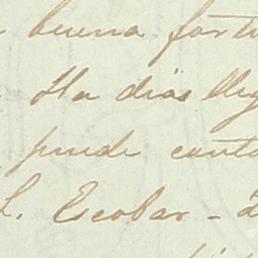 buena fortu
Ha días lleg
puede conta
L. Escobar -